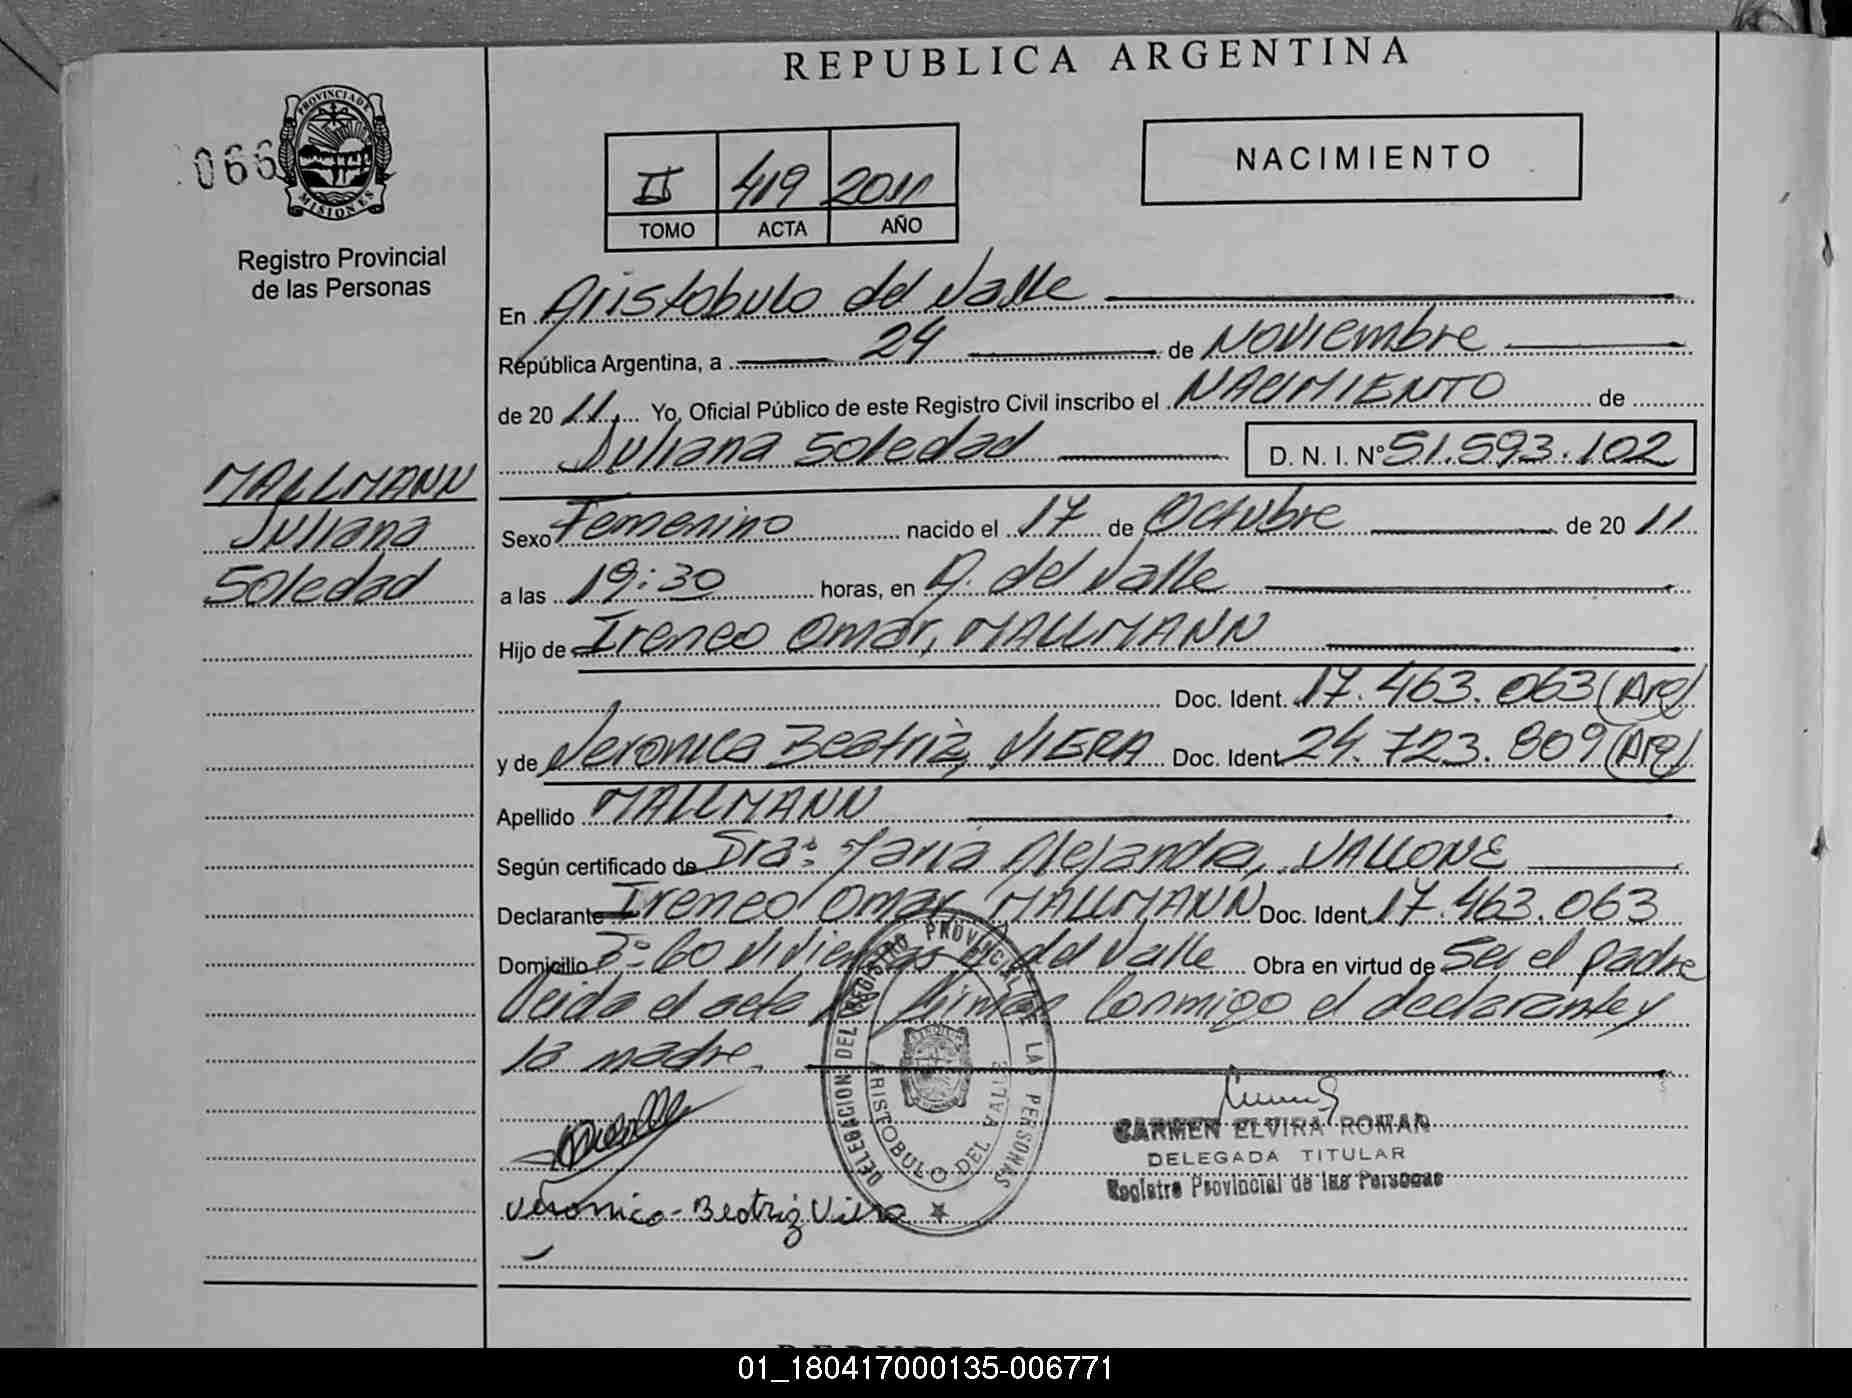 REPUBLICA ARGENTINA
066
PROVINCIA DE MISIONES
Registro Provincial
de las Personas
II 419 2011
TOMO ACTA AÑO
NACIMIENTO
En Aristobulo del Valle
República Argentina, a 24 de Noviembre
de 20 11. Yo, Oficial Público de este Registro Civil inscribo el NACIMIENTO de
Juliana Soledad D. N. I. Nº 51.593.102
MALLMANN
Juliana
Soledad
Sexo Femenino nacido el 17 de Octubre de 20 11
a las 19:30 horas, en A. del Valle
Hijo de Ireneo Omar, MALLMANN
Doc. Ident. 17.463.063 (Arg)
y de Veronica Beatriz, VIERA Doc. Ident. 24.723.809 (Arg)
Apellido MALLMANN
Según certificado de Dra: Maria Alejandra, VALLONE
Declarante Ireneo Omar MALLMANN Doc. Ident. 17.463.063
Domicilio Bº 60 Viviendas A. del Valle Obra en virtud de Ser el padre
Leida el acta la firman Conmigo el declarante y
la madre.
DELEGACION DEL REGISTRO PROVINCIAL DE LAS PERSONAS
ARISTOBULO DEL VALLE
CARMEN ELVIRA ROMAN
DELEGADA TITULAR
Registro Provincial de las Personas
Veronica-Beatriz Viera
01_180417000135-006771